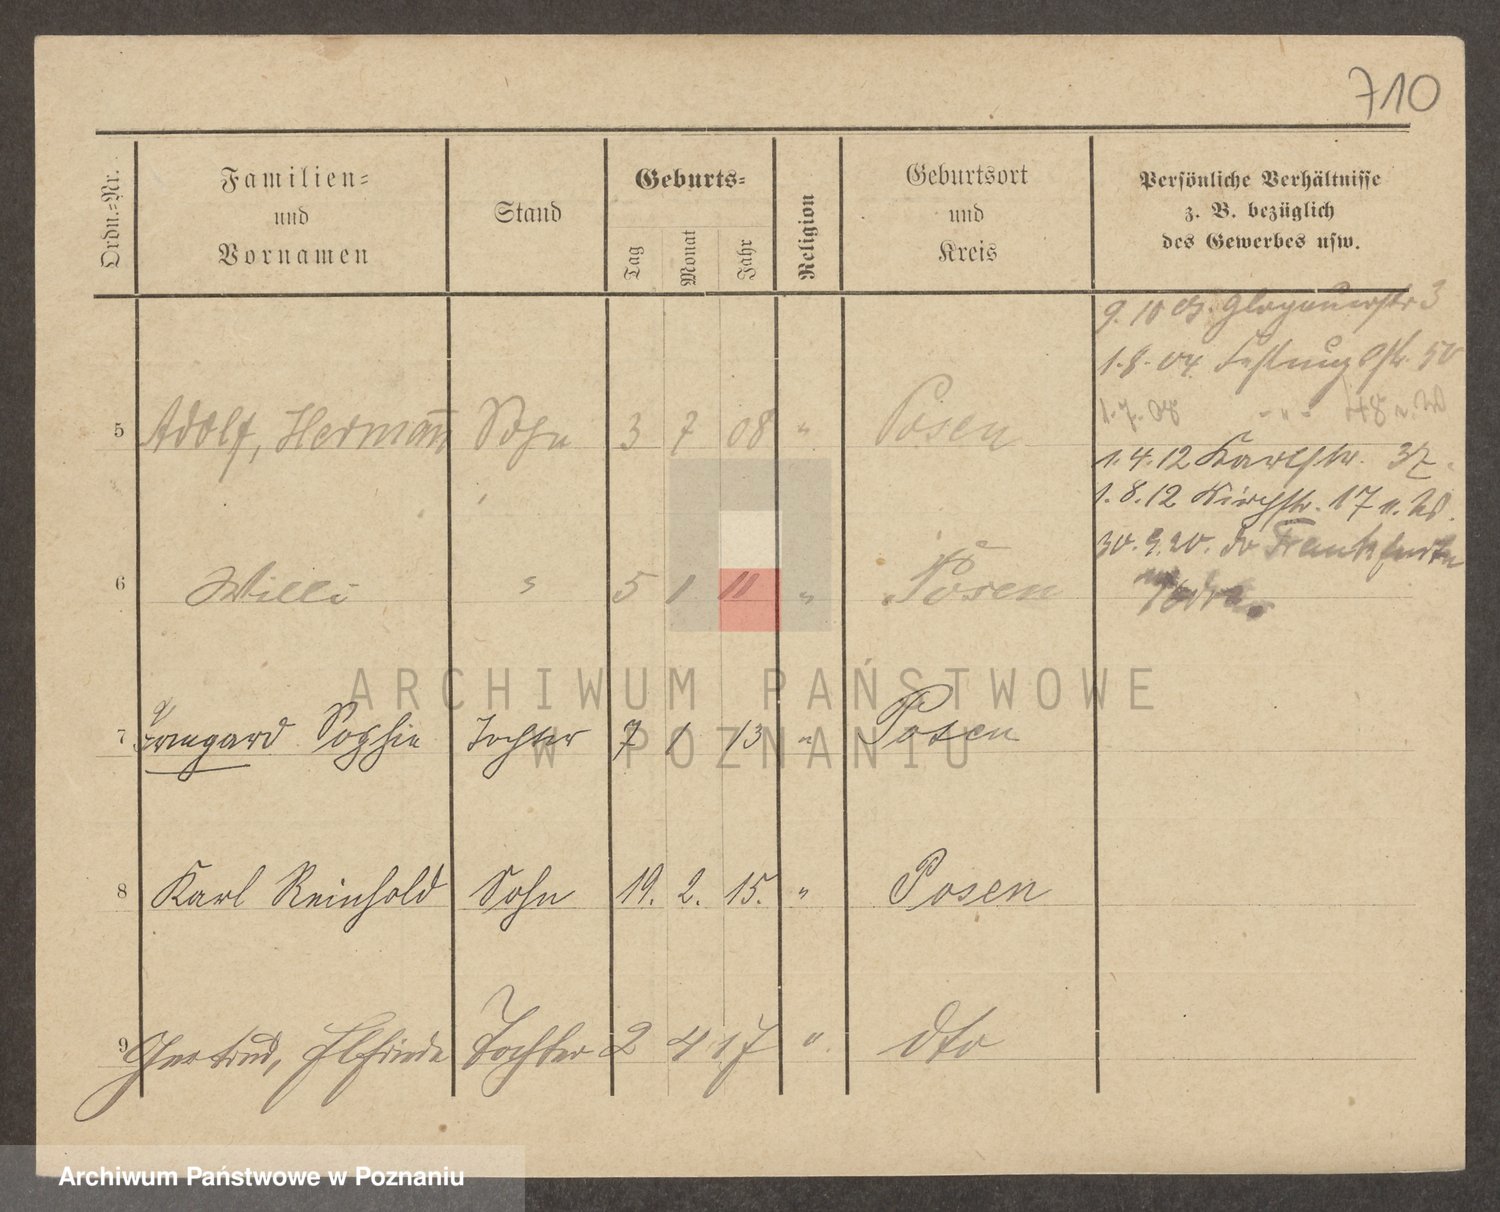 710
Ordn.=Nr.
Familien=
und
Vornamen
Stand
Geburts=
Tag
Monat
Jahr
Religion
Geburtsort
und
Kreis
Persönliche Verhältnisse
z. B. bezüglich
des Gewerbes usw.
9. 10 03. Glogauerstr 3
1. 8. 04. Festungsstr. 50
1. 7. 08 - " - 48 n. W
5 Adolf, Hermann Sohn 3 7 08 " Posen
1. 4. 12 Karlstr. 37.
1. 8. 12 Kirchstr. 17 n. W.
30. 9. 20. do Frankfurt
6 Willi " 5 1 11 " Posen
Oder.
ARCHIWUM PAŃSTWOWE
W POZNANIU
7 Irmgard Sophie Tochter 7 1 13 " Posen
8 Karl Reinhold Sohn 19. 2. 15. " Posen
9 Gertrud, Elfriede Tochter 2 4 17 " dto
Archiwum Państwowe w Poznaniu